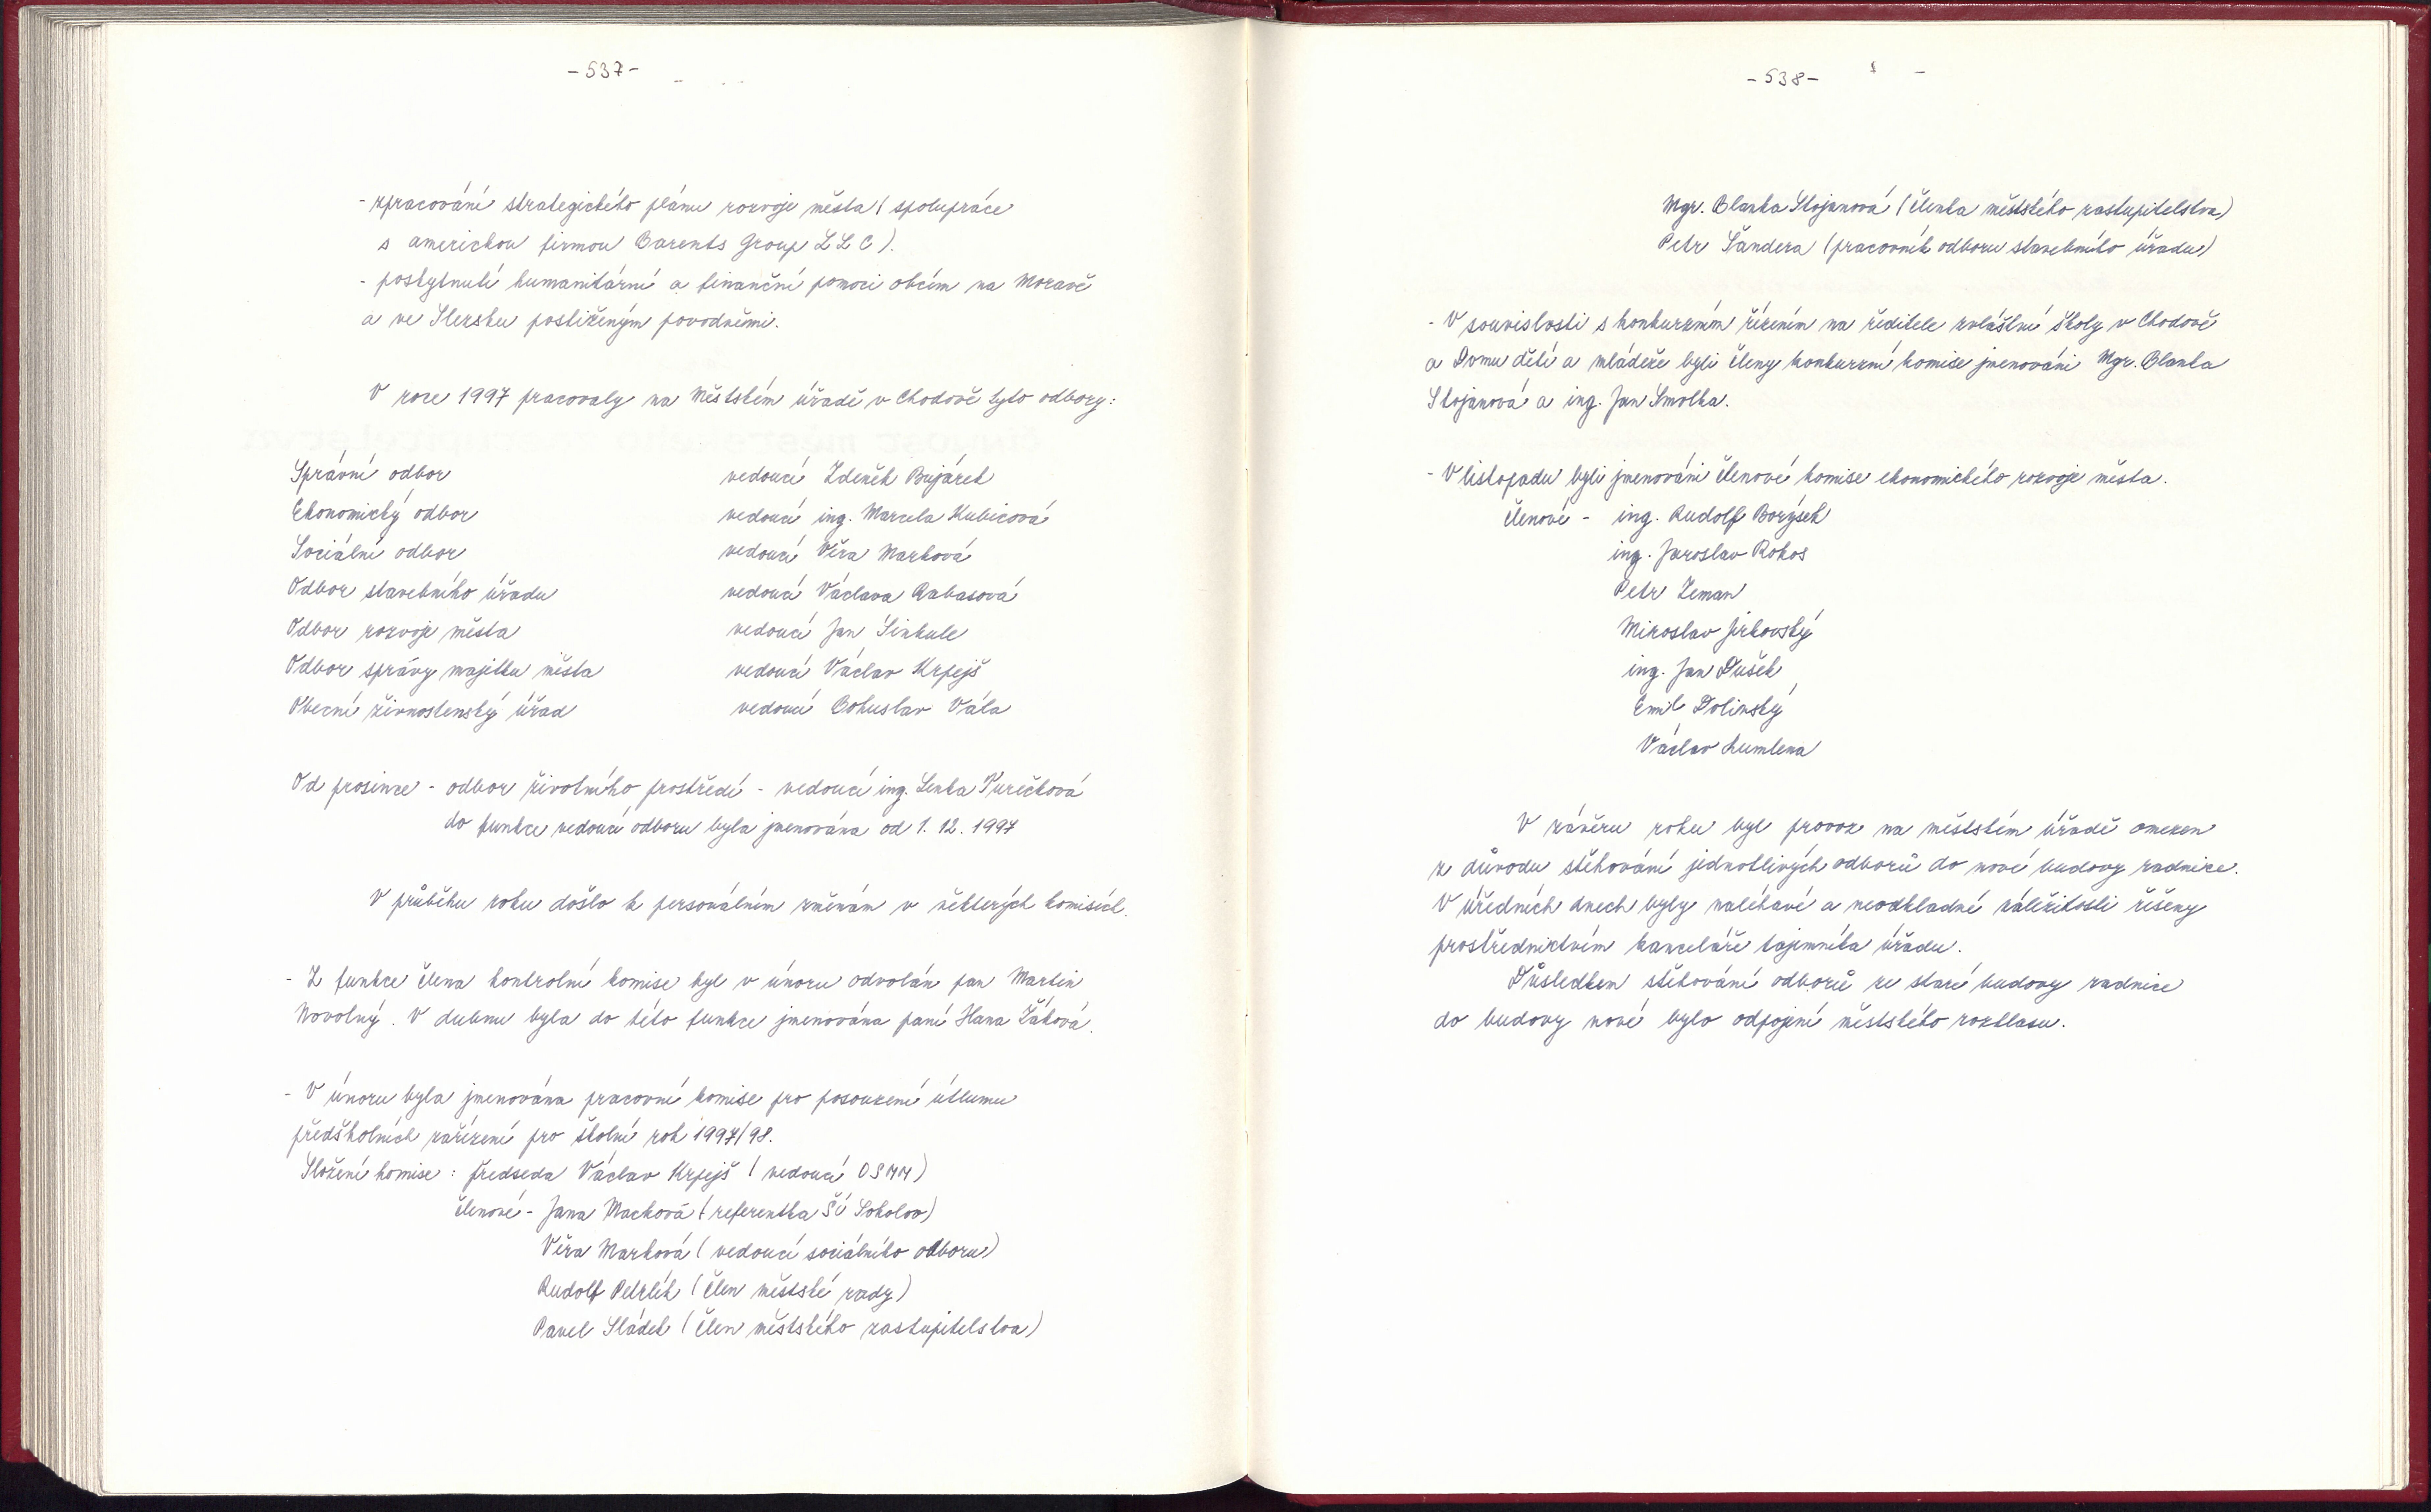 - 537 -
- zpracování strategického plánu rozvoje města (spolupráce
s americkou firmou Barents Group LLC).
- poskytnutí humanitární a finanční pomoci obcím na Moravě
a ve Slezsku postiženým povodněmi.
V roce 1997 pracovaly na Městském úřadě v Chodově tyto odbory:
Správní odbor vedoucí Zdeněk Bujárek
Ekonomický odbor vedoucí ing. Marcela Kubicová
Sociální odbor vedoucí Věra Marková
Odbor stavebního úřadu vedoucí Václava Rabasová
Odbor rozvoje města vedoucí Jan Sinkule
Odbor správy majetku města vedoucí Václav Krpejš
Obecní živnostenský úřad vedoucí Bohuslav Vála
Od prosince - odbor životního prostředí - vedoucí ing. Lenka Purečková
do funkce vedoucí odboru byla jmenována od 1. 12. 1997
V průběhu roku došlo k personálním změnám v některých komisích.
- Z funkce člena kontrolní komise byl v únoru odvolán pan Martin
Novotný. V dubnu byla do této funkce jmenována paní Hana Žáková.
- V únoru byla jmenována pracovní komise pro posouzení útlumu
předškolních zařízení pro školní rok 1997/98.
Složení komise: předseda Václav Krpejš (vedoucí OSMM)
členové - Jana Macková (referentka ŠÚ Sokolov)
Věra Marková (vedoucí sociálního odboru)
Rudolf Petrlík (člen městské rady)
Pavel Sládek (člen městského zastupitelstva)
- 538 -
Mgr. Blanka Stojanová (členka městského zastupitelstva)
Petr Šandera (pracovník odboru stavebního úřadu)
- V souvislosti s konkurzním řízením na ředitele zvláštní školy v Chodově
a Domu dětí a mládeže byli členy konkurzní komise jmenováni Mgr. Blanka
Stojanová a ing. Jan Smolka.
- V listopadu byli jmenováni členové komise ekonomického rozvoje města.
Členové - ing. Rudolf Borýsek
ing. Jaroslav Rokos
Petr Zeman
Miroslav Jirkovský
ing. Jan Dušek
Emil Dolinský
Václav Lumlena
V závěru roku byl provoz na městském úřadě omezen
z důvodu stěhování jednotlivých odborů do nové budovy radnice.
V úředních dnech byly naléhavé a neodkladné záležitosti řešeny
prostřednictvím kanceláře tajemníka úřadu.
Důsledkem stěhování odborů ze staré budovy radnice
do budovy nové bylo odpojení městského rozhlasu.